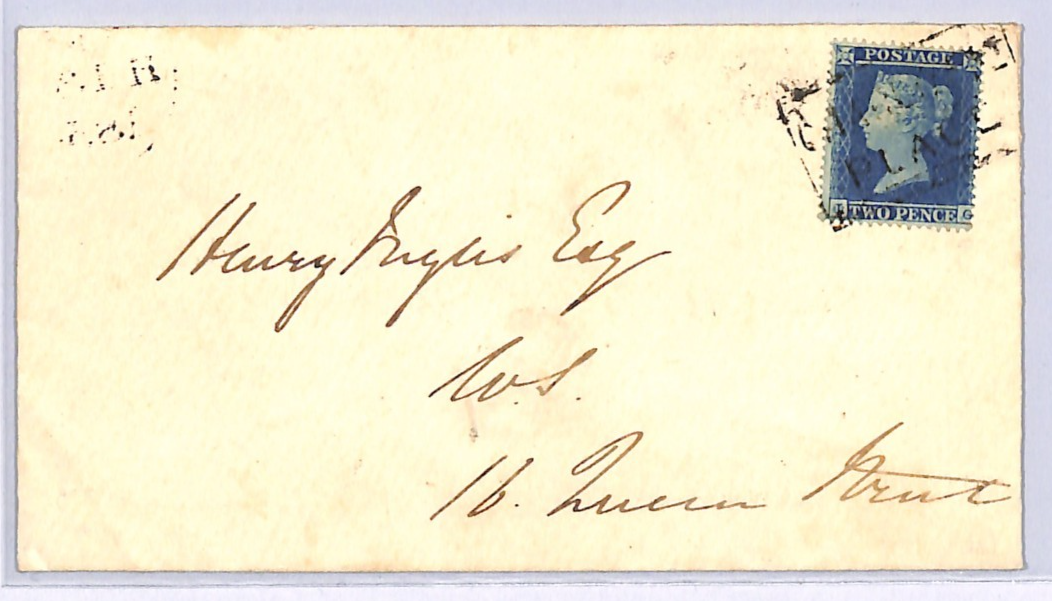 POSTAGE
PLACE
TWO PENCE G
Henry Inglis Esq
W.S.
16. Queen Street